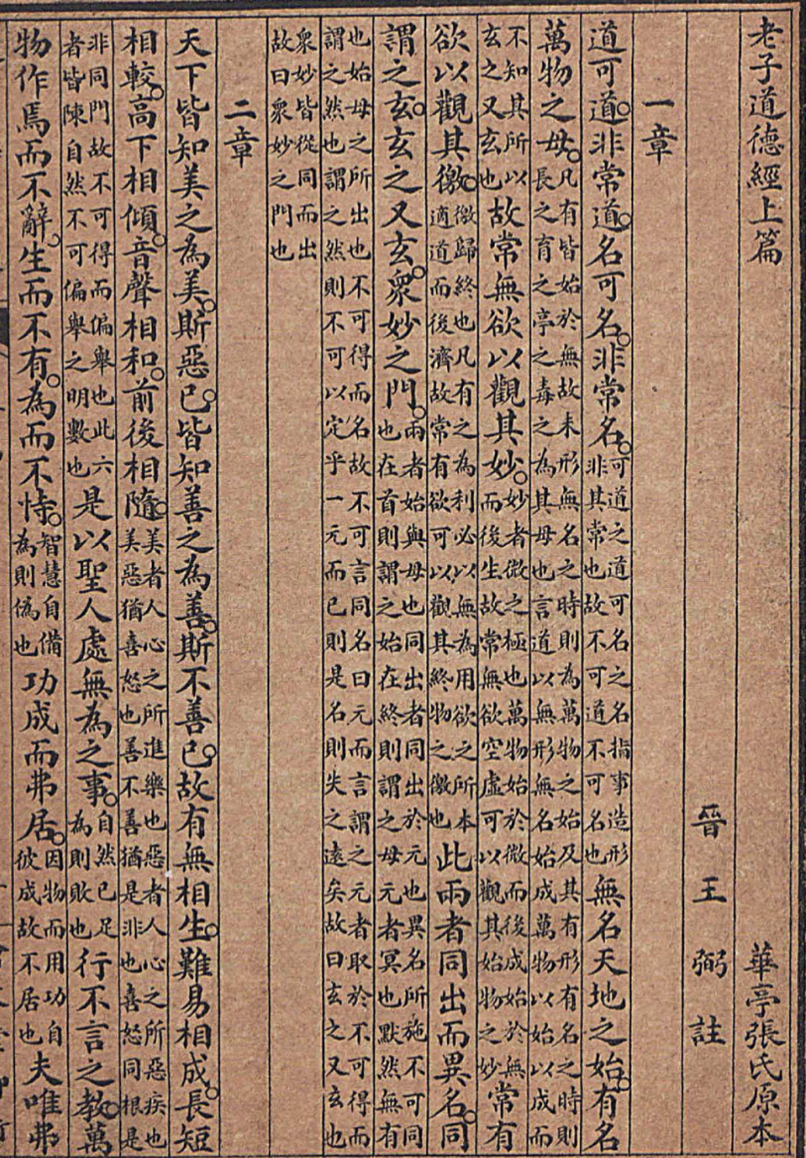 老子道德經上篇　華亭張氏原本
晉王弼註
一章
道可道。非常道。名可名。非常名。可道之道可名之名指事造形非其常也故不可道不可名也無名天地之始。有名
萬物之母。凡有皆始於無故未形無名之時則為萬物之始及其有形有名之時則長之育之亭之毒之為其母也言道以無形無名始成萬物以始以成而
不知其所以玄之又玄也故常無欲以觀其妙。妙者微之極也萬物始於微而後成始於無而後生故常無欲空虛可以觀其始物之妙常有
欲以觀其徼。徼歸終也凡有之為利必以無為用欲之所本適道而後濟故常有欲可以觀其終物之徼也此兩者同出而異名。同
謂之玄。玄之又玄。衆妙之門。兩者始與母也同出者同出於元也異名所施不可同也在首則謂之始在終則謂之母元者冥也默然無有
也始母之所出也不可得而名故不可言同名曰元而言謂之元者取於不可得而謂之然也謂之然則不可以定乎一元而已則是名則失之遠矣故曰玄之又玄也
衆妙皆從同而出故曰衆妙之門也
二章
天下皆知美之為美。斯惡已。皆知善之為善。斯不善已。故有無相生。難易相成。長短
相較。高下相傾。音聲相和。前後相隨。美者人心之所進樂也惡者人心之所惡疾也美惡猶喜怒也善不善猶是非也喜怒同根是
非同門故不可得而偏舉也此六者皆陳自然不可偏舉之明數也是以聖人處無為之事。自然已足為則敗也行不言之教。萬
物作焉而不辭。生而不有。為而不恃。智慧自備為則偽也功成而弗居。因物而用功自彼成故不居也夫唯弗